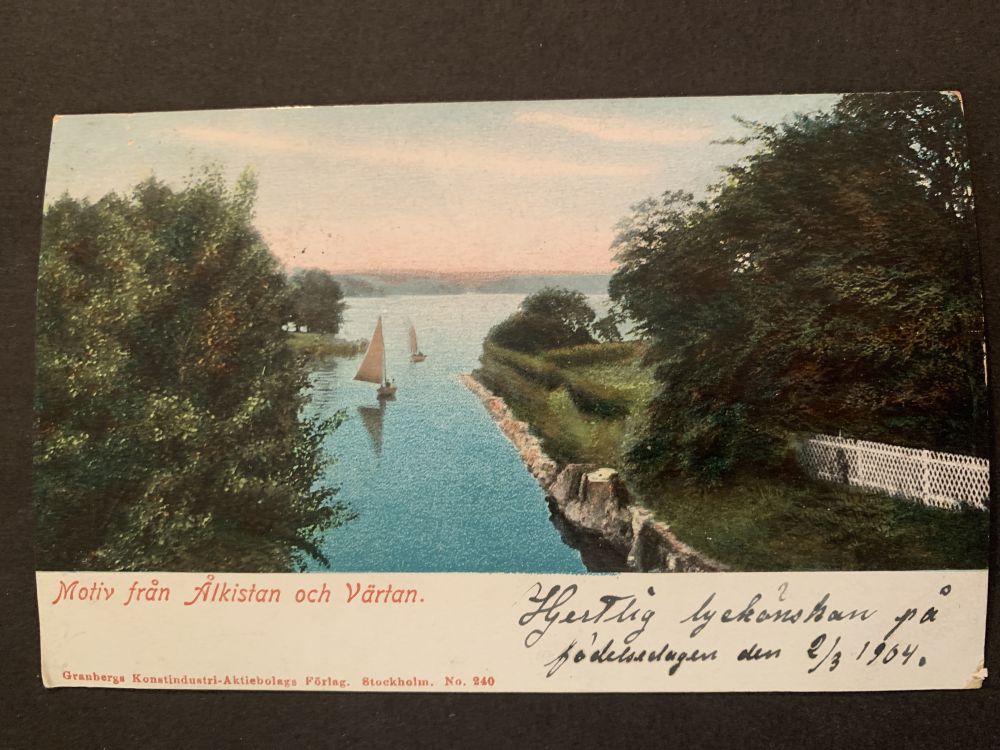 Motiv från Ålkistan och Värtan.
Hjertlig lyckönskan på
födelsedagen den 2/3 1904.
Granbergs Konstindustri-Aktiebolags Förlag. Stockholm. No. 240